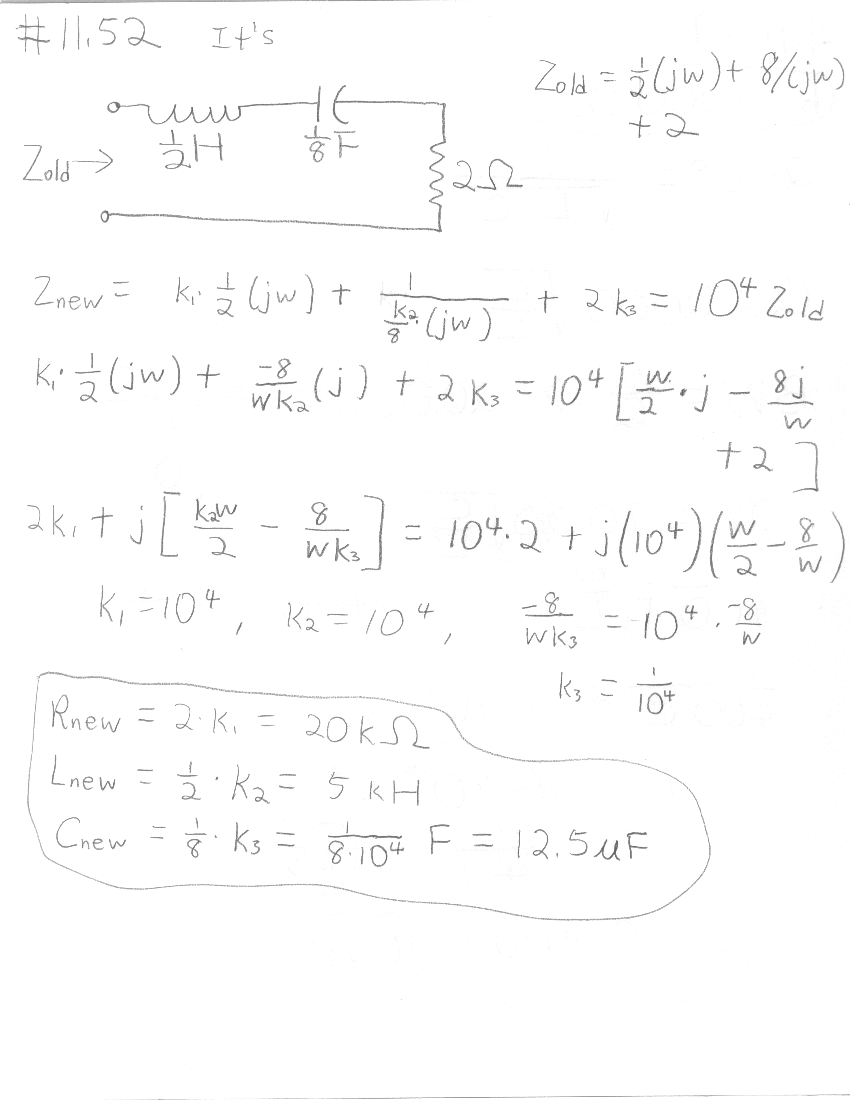 #11.52 It's
Zold = 1/2(jw) + 8/(jw)
+ 2
1/2 H 1/8 F
Zold → 2Ω
Znew = k₁·1/2(jw) + 1/(k₂/8·(jw)) + 2k₃ = 10⁴ Zold
k₁·1/2(jw) + -8/(wk₂)(j) + 2k₃ = 10⁴[w/2·j - 8j/w
+ 2]
2k₁ + j[k₂w/2 - 8/(wk₃)] = 10⁴·2 + j(10⁴)(w/2 - 8/w)
k₁ = 10⁴, k₂ = 10⁴, -8/(wk₃) = 10⁴·-8/w
k₃ = 1/10⁴
Rnew = 2·k₁ = 20kΩ
Lnew = 1/2·k₂ = 5 kH
Cnew = 1/8·k₃ = 1/(8·10⁴) F = 12.5uF